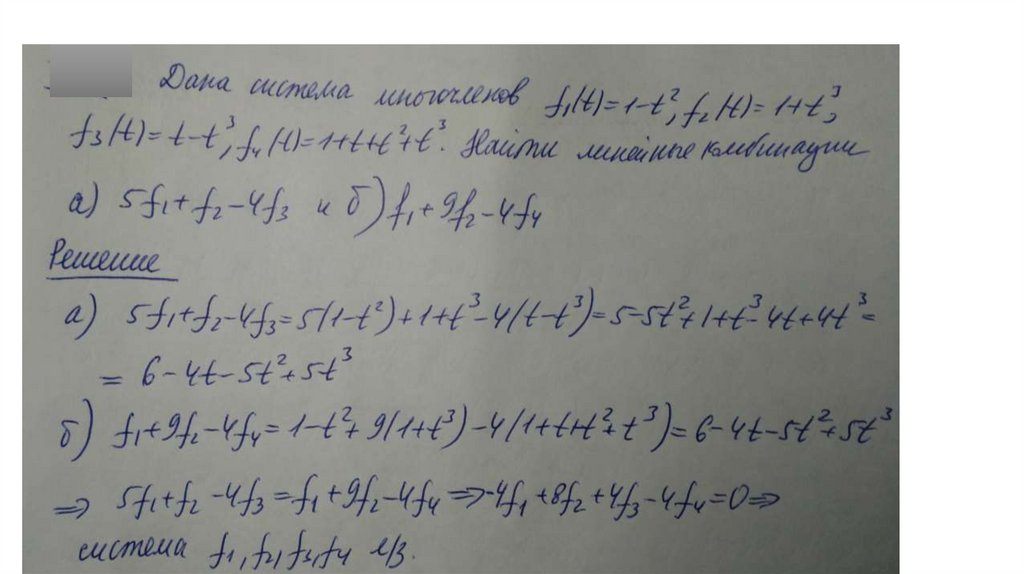 Дана система многочленов f₁(t)=1-t², f₂(t)=1+t³,
f₃(t)=t-t³, f₄(t)=1+t+t²+t³. Найти линейные комбинации
а) 5f₁+f₂-4f₃ и б) f₁+9f₂-4f₄
Решение
а) 5f₁+f₂-4f₃=5(1-t²)+1+t³-4(t-t³)=5-5t²+1+t³-4t+4t³=
= 6-4t-5t²+5t³
б) f₁+9f₂-4f₄=1-t²+9(1+t³)-4(1+t+t²+t³)=6-4t-5t²+5t³
⇒ 5f₁+f₂-4f₃=f₁+9f₂-4f₄⇒-4f₁+8f₂+4f₃-4f₄=0⇒
система f₁,f₂,f₃,f₄ л/з.